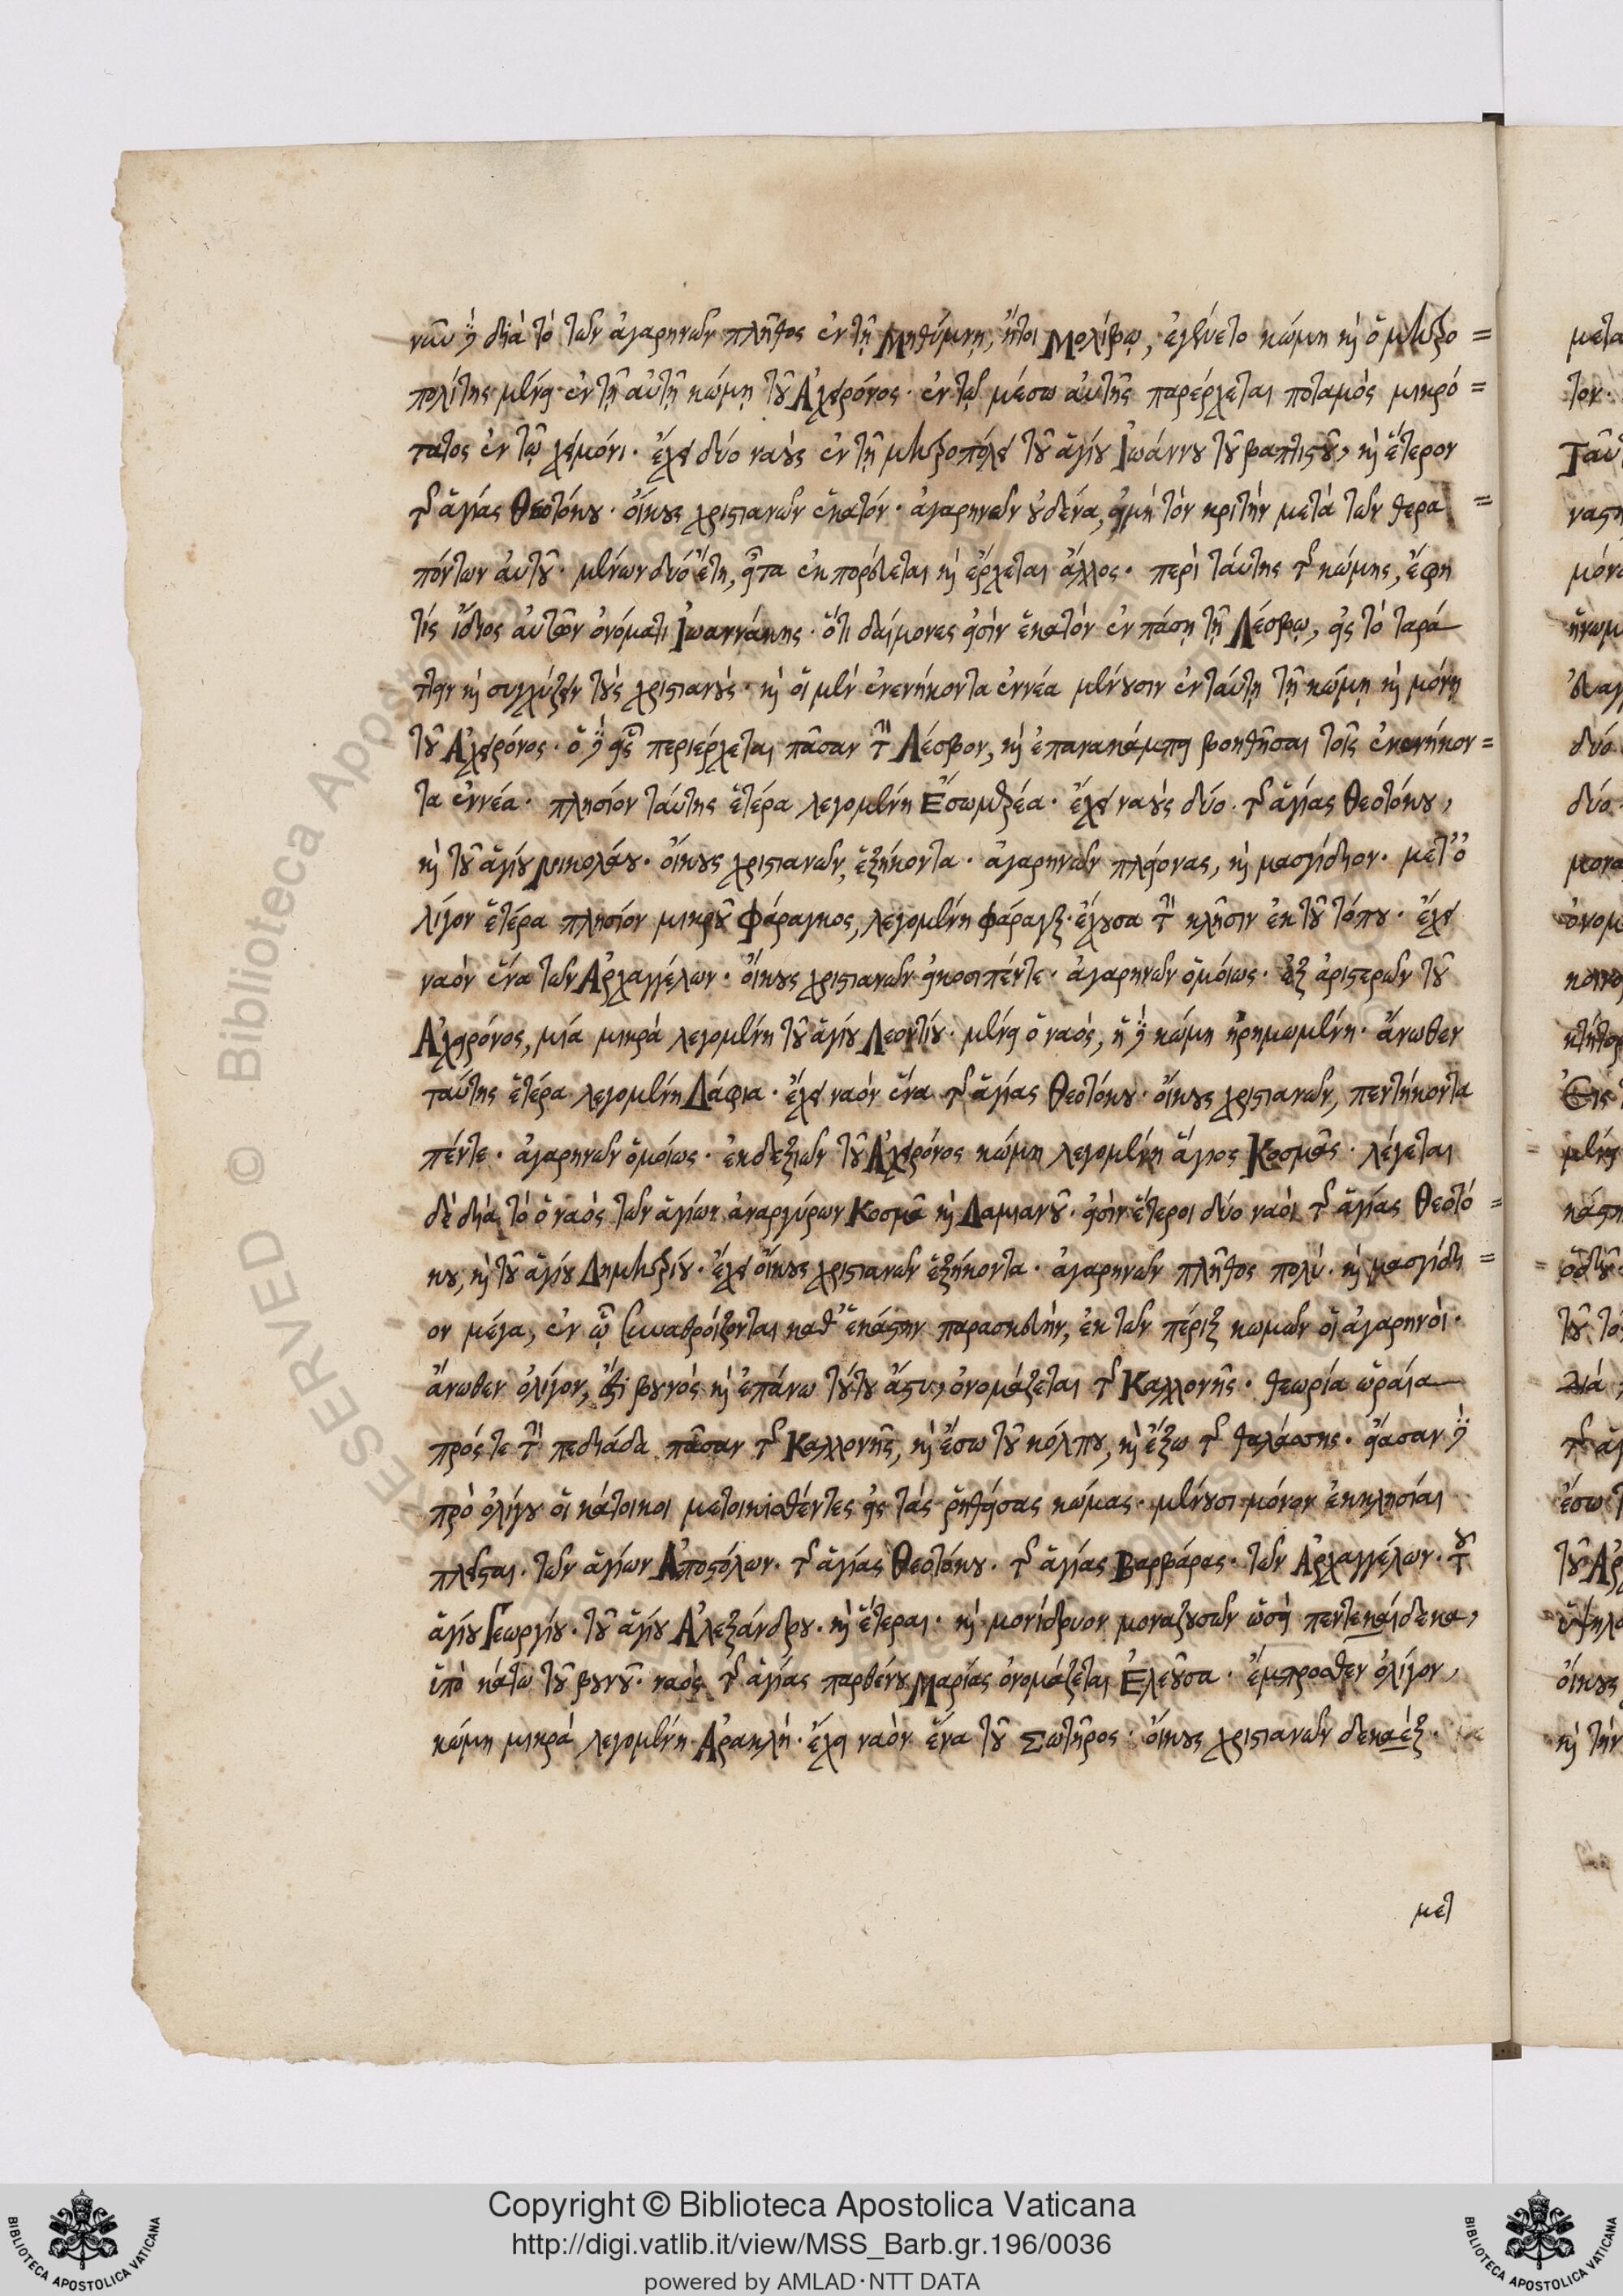 νῦν δὲ διὰ τὸ τῶν ἀγαρηνῶν πλῆθος ἐν τῇ Μηθύμνῃ, ἤτοι Μολίβῳ, ἐγένετο κώμη καὶ ὁ μητρο=
πολίτης μένει ἐν τῇ αὐτῇ κώμῃ τοῦ Ἀχειρόνος· ἐν τῷ μέσω αὐτῆς παρέρχεται ποταμὸς μικρό=
τατος ἐν τῷ χειμόνι· ἔχει δύο ναοὺς ἐν τῇ μητροπόλει τοῦ ἁγίου Ἰωάννου τοῦ βαπτιστοῦ, καὶ ἕτερον
τῆς ἁγίας Θεοτόκου· οἴκους χριστιανῶν ἑκατόν· ἀγαρηνῶν οὐδένα, εἰμὴ τὸν κριτὴν μετὰ τῶν θερα=
πόντων αὐτοῦ· μένων δύο ἔτη, εἶτα ἐκπορεύεται καὶ ἔρχεται ἄλλος· περὶ ταύτης τῆς κώμης, ἔφη
τίς ἴδιος αὐτῶν ὀνόματι Ἰωαννάκης· ὅτι δαίμονες εἰσὶν ἑκατὸν ἐν πάσῃ τῇ Λέσβῳ, εἰς τὸ ταρά
τειν καὶ συγχύζειν τοὺς χριστιανούς· καὶ οἱ μὲν ἐνενήκοντα ἐννέα μένουσιν ἐν ταύτῃ τῇ κώμῃ καὶ μόνῃ
τοῦ Ἀχειρόνος· ὁ δὲ εἷς περιέρχεται πᾶσαν τὴν Λέσβον, καὶ ἐπανακάμπει βοηθῆσαι τοῖς ἐνενήκον=
τα ἐννέα· πλησίον ταύτης ἑτέρα λεγομένη Ἔσωμερέα· ἔχει ναοὺς δύο· τῆς ἁγίας Θεοτόκου,
καὶ τοῦ ἁγίου Νικολάου· οἴκους χριστιανῶν, ἑξήκοντα· ἀγαρηνῶν πλείονας, καὶ μασγίδιον· μετ' ὀ
λίγον ἑτέρα πλησίον μικροῦ Φάραγκος, λεγομένη φάραγξ· ἔχουσα τὴν κλῆσιν ἐκ τοῦ τόπου· ἔχει
ναὸν ἕνα τῶν Ἀρχαγγέλων· οἴκους χριστιανῶν εἰκοσιπέντε· ἀγαρηνῶν ὁμοίως· ἐξ ἀριστερῶν τοῦ
Ἀχειρόνος, μία μικρὰ λεγομένη τοῦ ἁγίου Λεοντίου· μένει ὁ ναός, ἡ δὲ κώμη ἠρημωμένη· ἄνωθεν
ταύτης ἑτέρα λεγομένη Δάφια· ἔχει ναὸν ἕνα τῆς ἁγίας Θεοτόκου· οἴκους χριστιανῶν, πεντήκοντα
πέντε· ἀγαρηνῶν ὁμοίως· ἐκ δεξιῶν τοῦ Ἀχειρόνος κώμη λεγομένη ἅγιος Κοσμᾶς· λέγεται
δὲ διὰ τὸ ὁ ναὸς τῶν ἁγίων ἀναργύρων Κοσμᾶ καὶ Δαμιανοῦ· εἰσὶν ἕτεροι δύο ναοὶ τῆς ἁγίας Θεοτό=
κου, καὶ τοῦ ἁγίου Δημητρίου· ἔχει οἴκους χριστιανῶν ἑξήκοντα· ἀγαρηνῶν πλῆθος πολύ· καὶ μασγίδι=
ον μέγα, ἐν ᾧ συναθροίζονται καθ' ἑκάστην παρασκευήν, ἐκ τῶν πέριξ κωμῶν οἱ ἀγαρηνοί·
ἄνωθεν ὀλίγον, ἐστὶ βουνὸς καὶ ἐπάνω τούτου ἄστυ, ὀνομάζεται τῆς Καλλονῆς· θεωρία ὡραία
πρός τε τὴν πεδιάδα πᾶσαν τῆς Καλλονῆς, καὶ ἔσω τοῦ κόλπου, καὶ ἔξω τῆς θαλάσσης· εἴασαν δὲ
πρὸ ὀλίγου οἱ κάτοικοι μετοικισθέντες εἰς τὰς ῥηθείσας κώμας· μένουσι μόνον ἐκκλησίαι
πλεῖσται· τῶν ἁγίων Ἀποστόλων· τῆς ἁγίας Θεοτόκου· τῆς ἁγίας Βαρβάρας· τῶν Ἀρχαγγέλων· τοῦ
ἁγίου Γεωργίου· τοῦ ἁγίου Ἀλεξάνδρου· καὶ ἕτεραι· καὶ μονίδρυον μοναζουσῶν ὡσεὶ πεντεκαίδεκα,
ὑπὸ κάτω τοῦ βουνοῦ· ναὸς τῆς ἁγίας παρθένου Μαρίας ὀνομάζεται Ἐλεοῦσα· ἔμπροσθεν ὀλίγον,
κώμη μικρὰ λεγομένη Ἀρακλή· ἔχει ναὸν ἕνα τοῦ Σωτῆρος· οἴκους χριστιανῶν δεκαέξ·
μετ
Copyright © Biblioteca Apostolica Vaticana
http://digi.vatlib.it/view/MSS_Barb.gr.196/0036
powered by AMLAD·NTT DATA